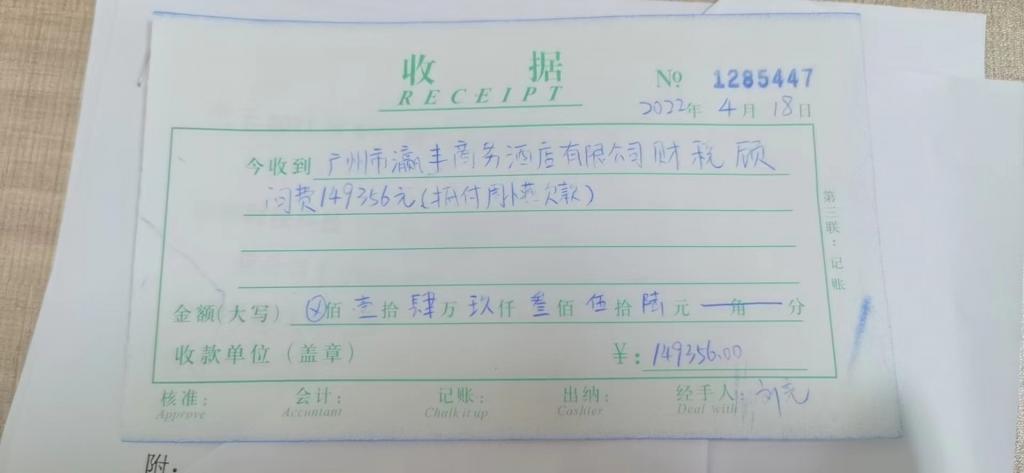 收 据
RECEIPT
№ 1285447
2022年 4月 18日
今收到 广州市瀛丰商务酒店有限公司财税顾
问费149356元(抵付周小燕欠款)
第三联：记账
金额(大写) ⊗佰 壹拾 肆万 玖仟 叁佰 伍拾 陆元 角 分
收款单位(盖章) ¥: 149356.00
核准: 会计: 记账: 出纳: 经手人:
Approve Accountant Chalk it up Cashier Deal with
附.